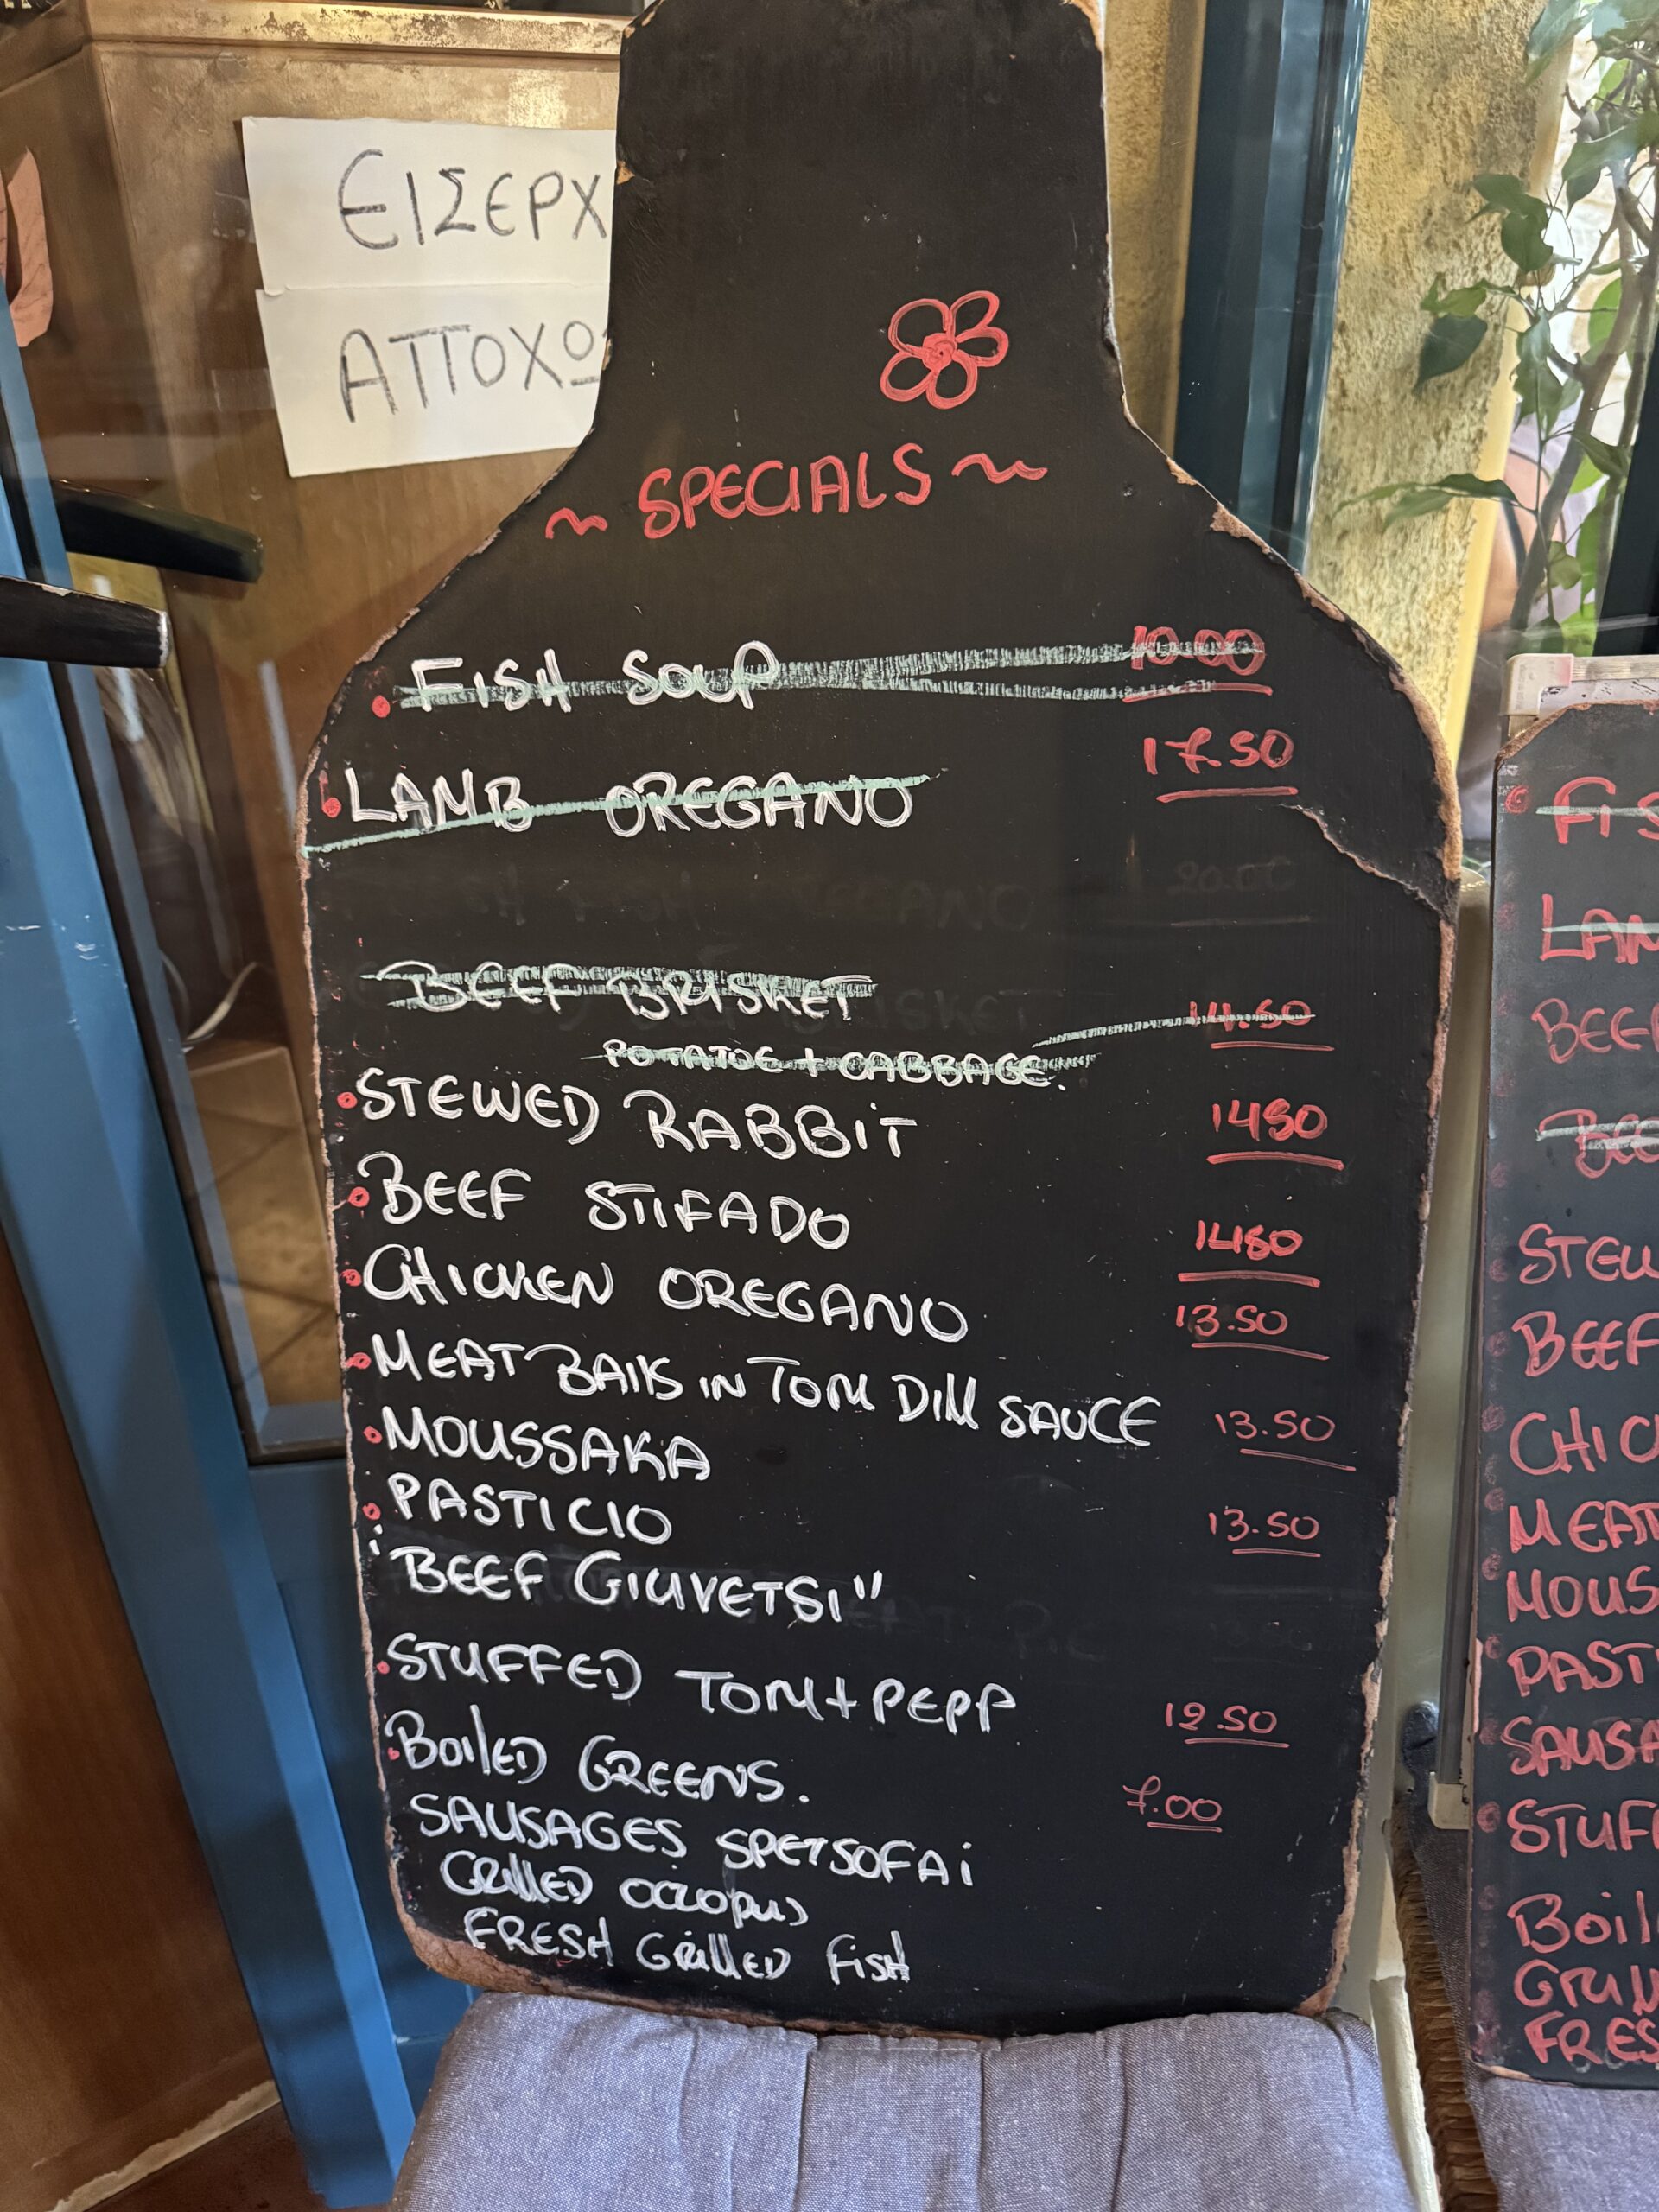 ΕΙΣΕΡΧ
ΑΠΟΧΩ
~ SPECIALS ~
FISH SOUP 10.00
LAMB OREGANO 17.50
FISH OREGANO 20.00
BEEF BRISKET
POTATOE + CABBAGE. 14.50
STEWED RABBIT 1450
BEEF STIFADO 1450
CHICKEN OREGANO 13.50
MEAT BAllS IN TOM DIll SAUCE 13.50
MOUSSAKA
PASTICIO 13.50
"BEEF GIUVETSI"
STUFFED TOM+PEPP 12.50
BOILED GREENS. 7.00
SAUSAGES SPETSOFAI
GRILLED OCTOPUS
FRESH GRILLED FISH
FIS
LAM
BEEF
BEE
STEW
BEEF
CHIC
MEAT
MOUS
PASTI
SAUSA
STUFF
BOIL
GRILL
FRES